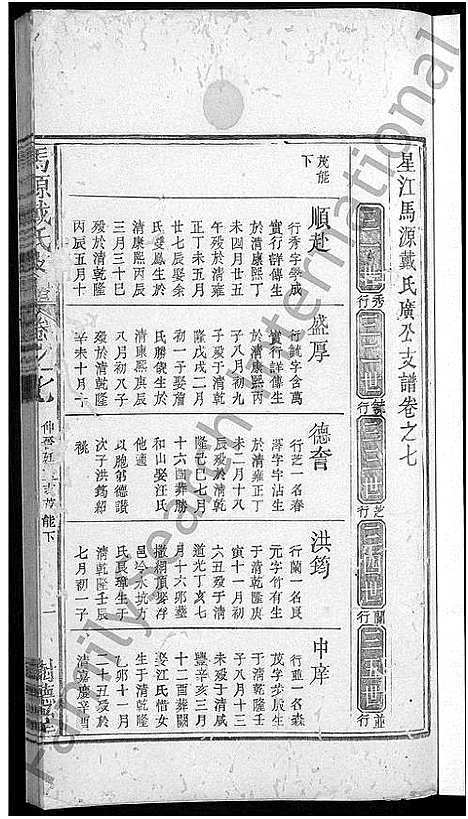 星江馬源戴氏廣公支譜卷之七
三十一世 秀行
三十二世
三十三世 芝行
三十四世 蘭行
三十五世 並行
茂能
下
順赴
行秀字學成
實行詳傳生
於清康熙丁
未四月廿五
午殁於清雍
正丁未五月
廿七辰娶余
氏雙鳳生於
清康熙丙辰
三月三十巳
殁於清乾隆
丙辰五月十
盛厚
行試字含萬
實行詳傳生
於清康熙丙
子八月初九
子殁于清乾
隆戊戌二月
初一子娶詹
氏勝俵生於
清康熙庚辰
八月初八子
殁於清乾隆
辛未十月十
德奮
行芝一名春
濤字沽生
於清雍正丁
未二月十八
辰殁於清乾
隆己巳七月
十六酉葬勝
和山娶汪氏
他適
以胞弟德讃
次子洪筠紹
祧
洪筠
行蘭一名良
元字竹有生
于清乾隆庚
寅十一月初
六丑殁于清
道光丁亥七
月十六卯塟
撒網頂娶存
邑冷水坑方
氏良璋生于
清乾隆壬辰
七月初一子
中庠
行並一名淼
茂字步殷生
于清乾隆壬
子八月十三
未殁于清咸
豐辛亥三月
十二酉葬關
娶江氏惜女
生于清乾隆
乙卯十一月
二十五殁於
清嘉慶辛酉
馬源戴氏支譜 卷之七
能下
一